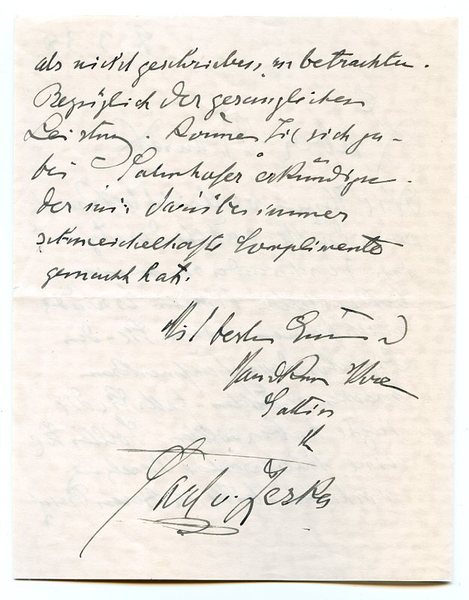 als nicht geschrieben, zu betrachten.
Bezüglich der gesanglichen
Leistung. können Sie sich ja
bei erkundigen.
der mir darüber immer
schmeichelhafte Complimente
gemacht hat.
Mit besten
Ihre
Gattin
Ihr
Carl v. Jeska